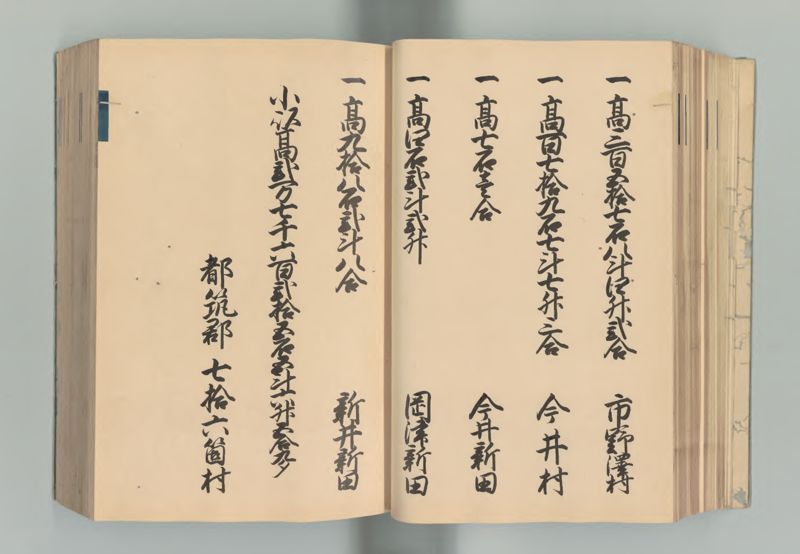 一高三百五拾七石八斗四升弐合 市野澤村
一高百七拾九石七斗七升二合 今井村
一高七石壱合 今井新田
一高四石弐斗弐升 岡津新田
一高九拾八石弐斗八合 新井新田
小以高弐万七千六百弐拾五石五斗六升五合
都筑郡 七拾六箇村